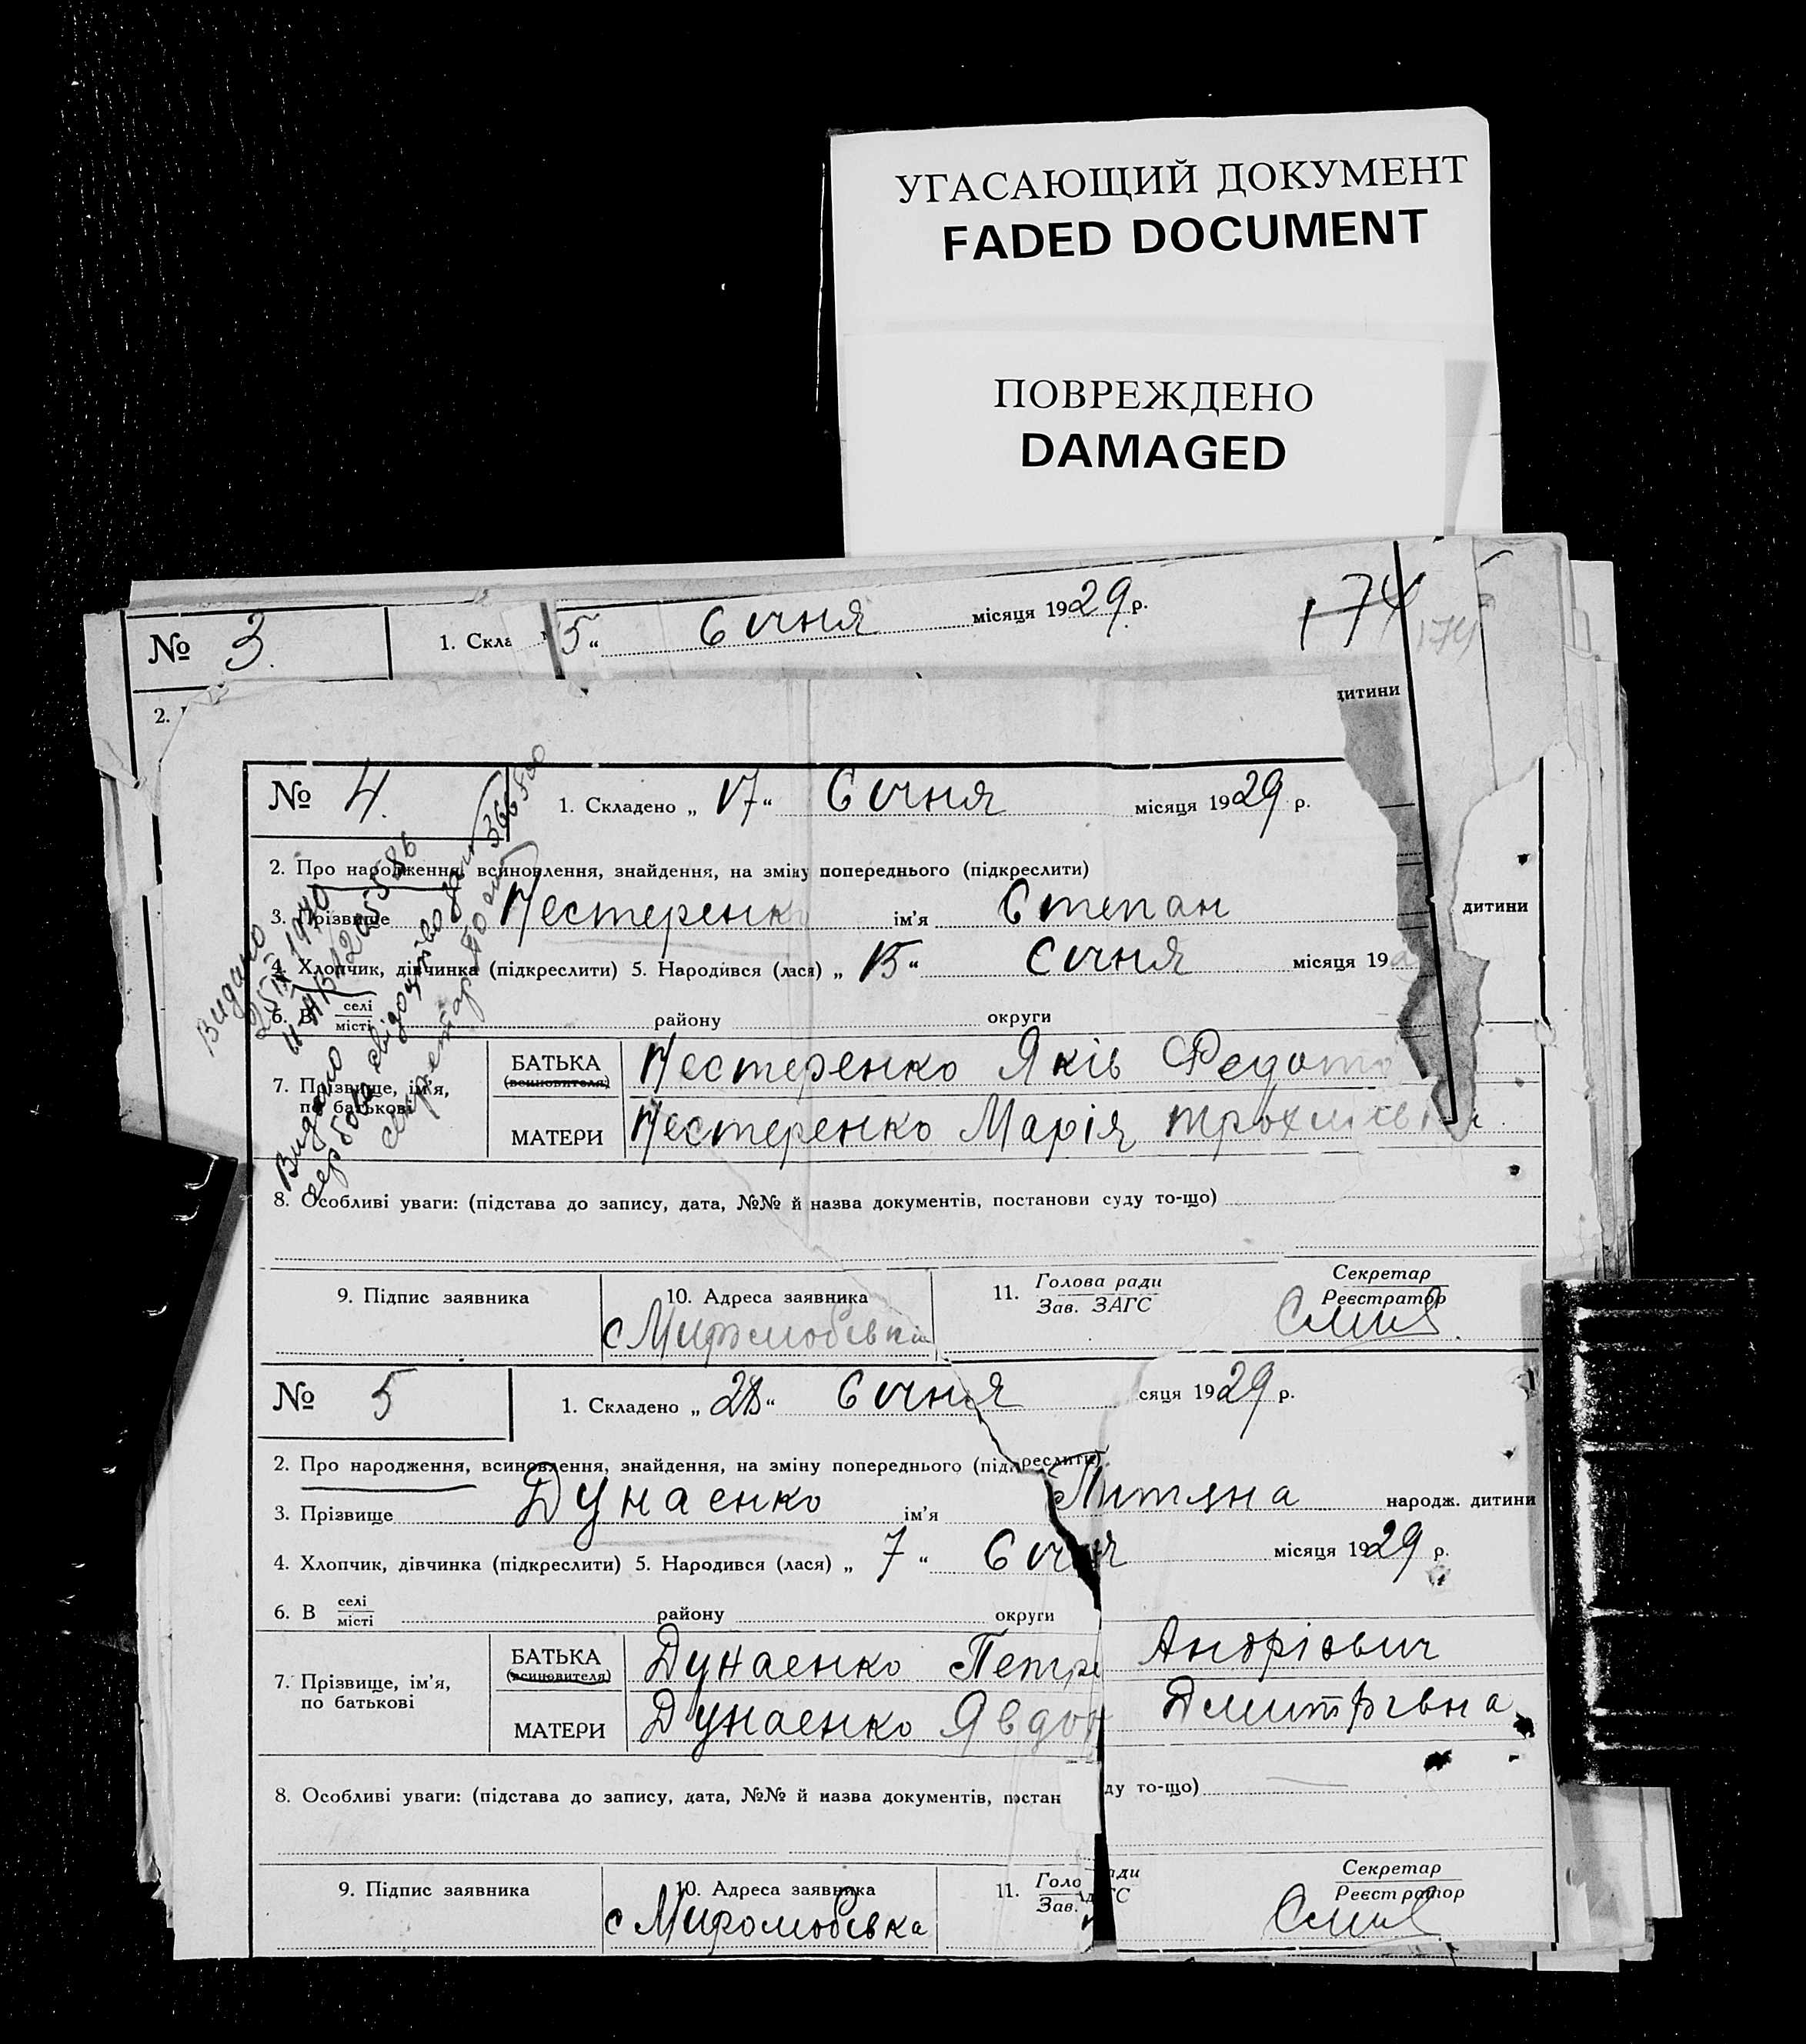 УГАСАЮЩИЙ ДОКУМЕНТ
FADED DOCUMENT
ПОВРЕЖДЕНО
DAMAGED
№ 3. 1. Скла 5 “ Січня місяця 1929 р. 174
174
2.
дитини
№ 4. 1. Складено „ 17 “ Січня місяця 1929 р.
2. Про народження, всиновлення, знайдення, на зміну попереднього (підкреслити)
3. Прізвище Нестеренко ім’я Степан дитини
4. Хлопчик, дівчинка (підкреслити) 5. Народився (лася) „ 15 “ Січня місяця 19
6. В селі
місті району округи
7. Прізвище, ім’я,
по батькові
БАТЬКА
(всиновителя)
Нестеренко Яків Федото
МАТЕРИ Нестеренко Марія
8. Особливі уваги: (підстава до запису, дата, №№ й назва документів, постанови суду то-що)
Видано
1940
Видано
свідоцтво
секретар
9. Підпис заявника
10. Адреса заявника
с
11. Голова ради
Зав. ЗАГС
Секретар
Реєстратор
№ 5 1. Складено „ 28 “ Січня сяця 1929 р.
2. Про народження, всиновлення, знайдення, на зміну попереднього (підкреслити)
3. Прізвище Дунаенко ім’я народж. дитини
4. Хлопчик, дівчинка (підкреслити) 5. Народився (лася) „ 7 “ Січня місяця 1929 р.
6. В селі
місті району округи
7. Прізвище, ім’я,
по батькові
БАТЬКА
(всиновителя)
Дунаенко Петро Андрієвич
МАТЕРИ Дунаенко Явдок Дмитрівна
8. Особливі уваги: (підстава до запису, дата, №№ й назва документів, постан ду то-що)
9. Підпис заявника
10. Адреса заявника
с Миролюбівка
11. Голо ади
Зав. ГС
Секретар
Реєстратор